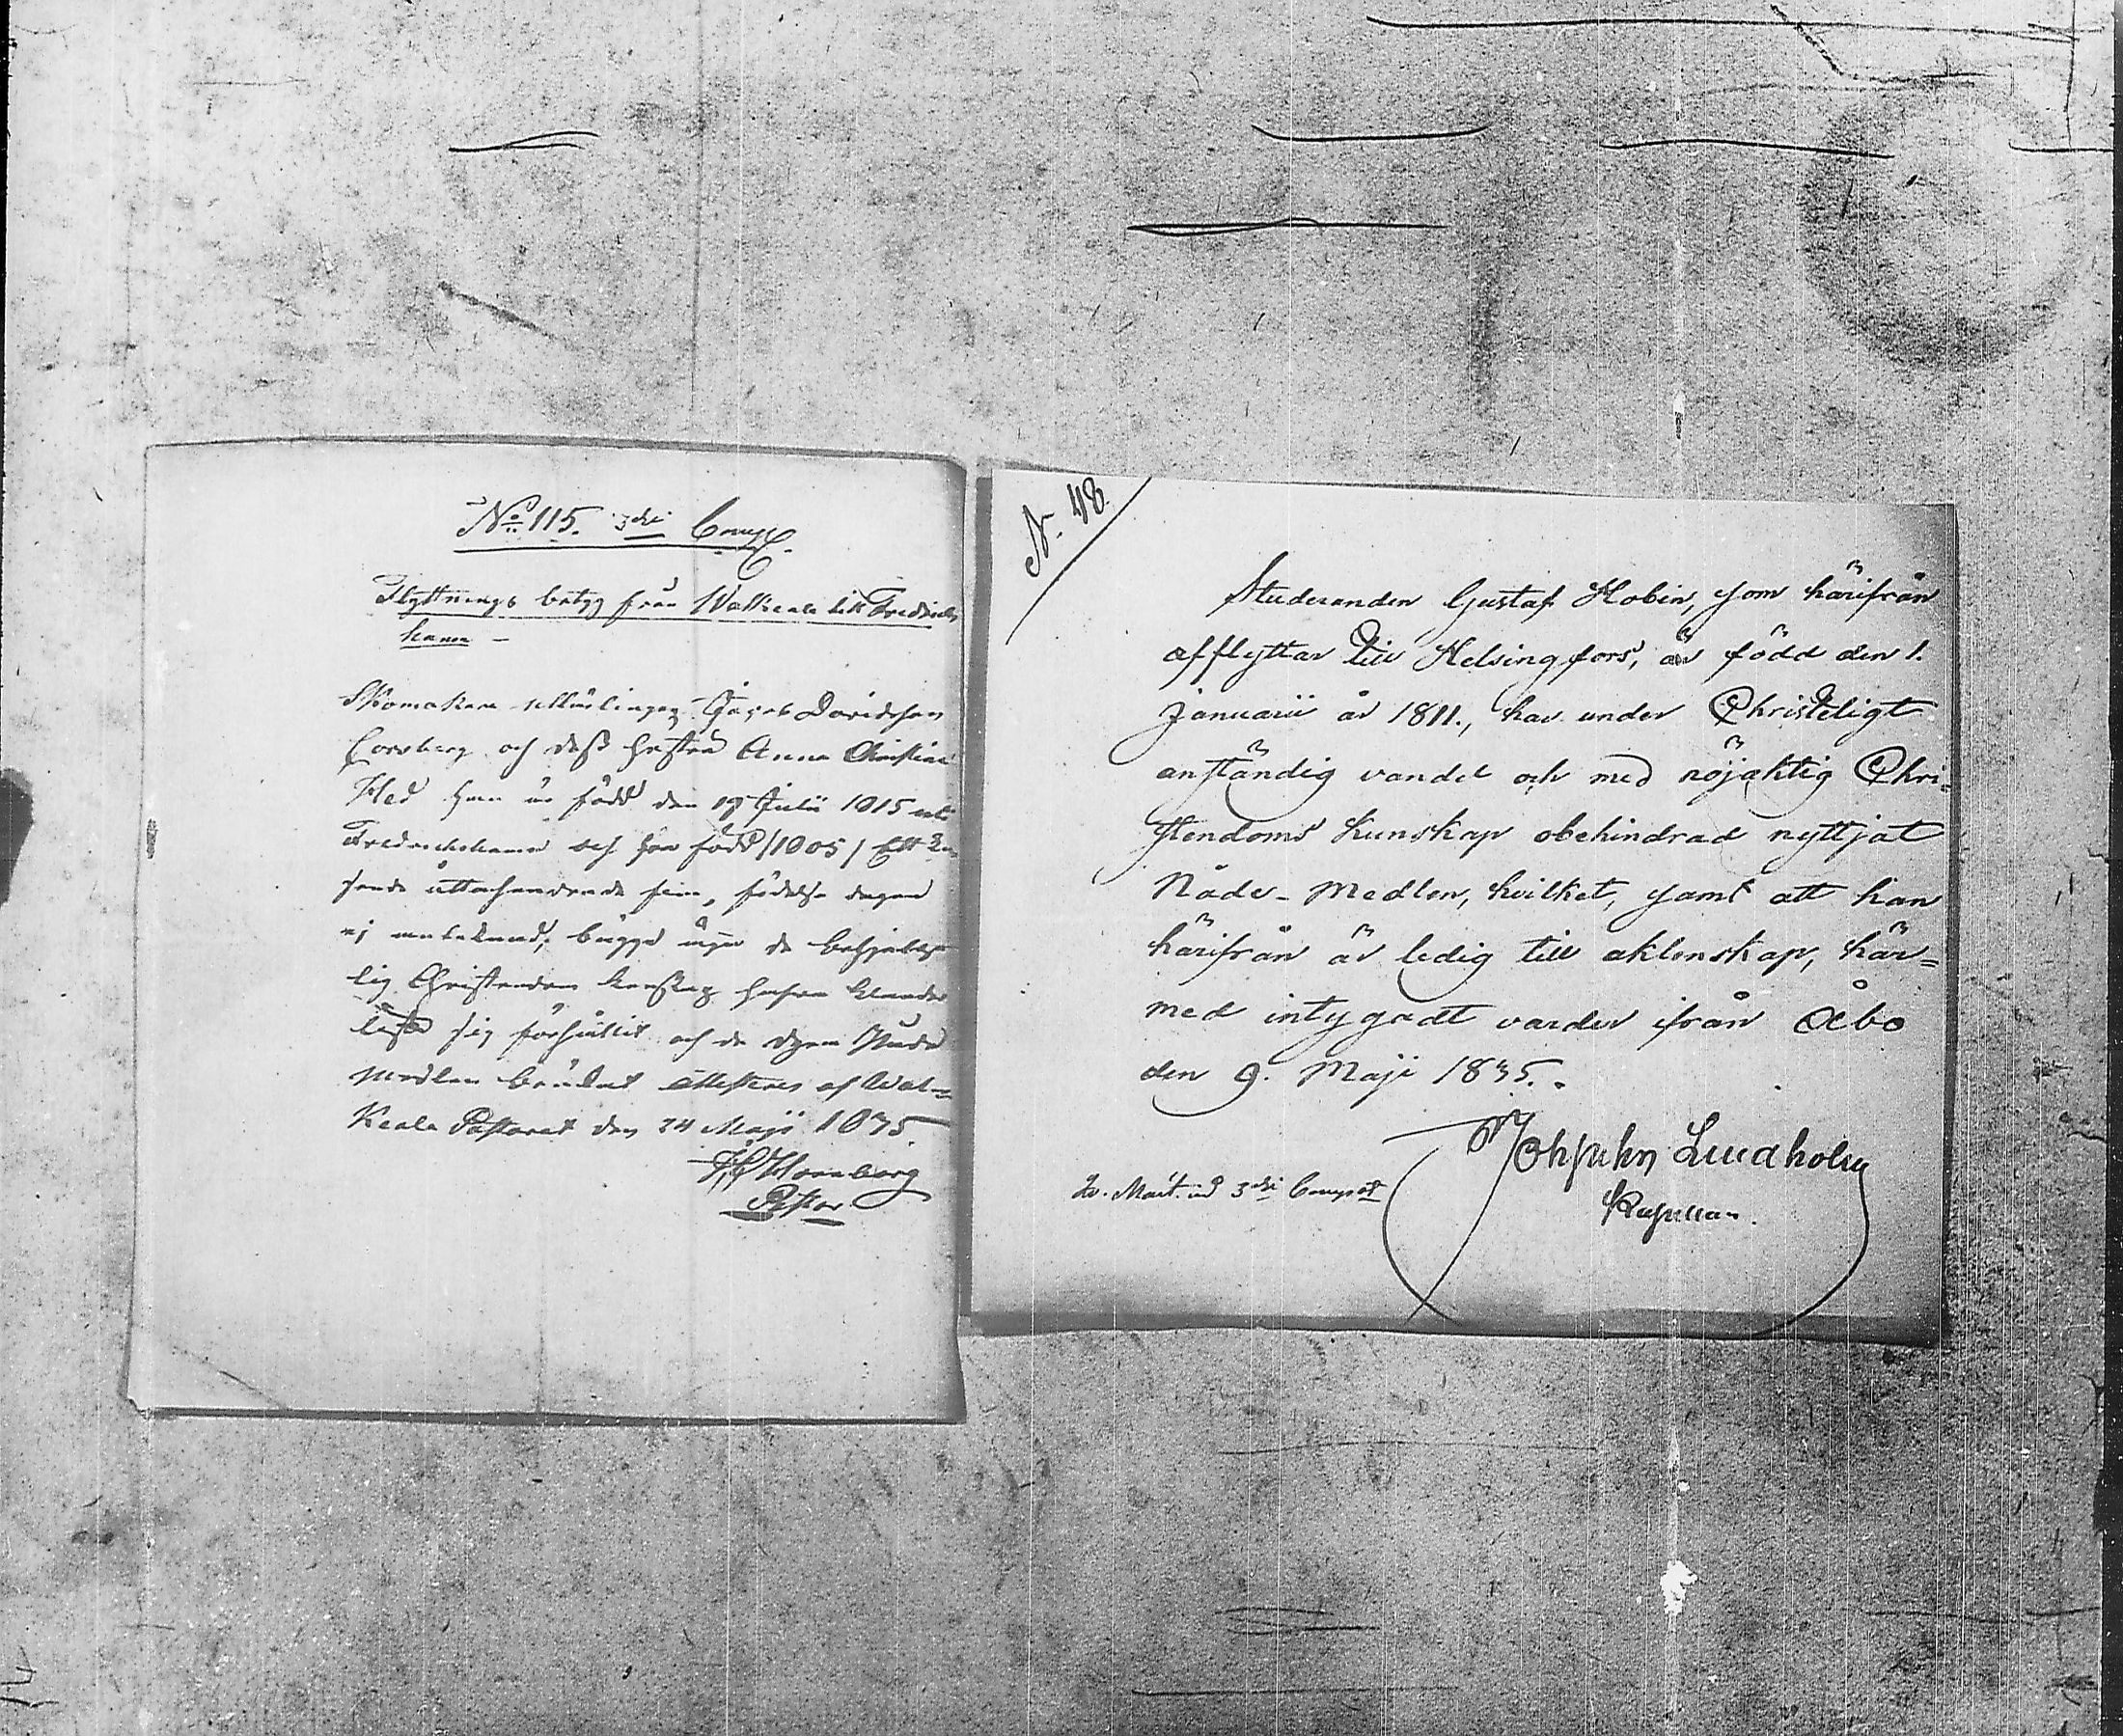 No 115. 3die Comp.
Flyttnings betyg från Walkeala till Fredrics
hamn –
Skomakare Jacob Davidsson
och dess hustru Anna Christina
Hed han är född den 19 Julii 1815 uti
Fredrickshamn och hon född /1805/ Ett tu-
sende åttahundrade fem, födelse dagen
ej antecknad; bägge äga de
lig Christendoms kunskap hafva klander
löst sig förhållit och de Nåde
medlen attesteras af Wal=
Keala Pastorat den 24 Maji 1835.
Pastor
N. 48.
Studeranden Gustaf Hobin, som härifrån
afflyttar till Helsingfors, är född den 1.
Januarii år 1811., har under Christeligt
anständig vandel och med nöjaktig Chri=
stendoms kunskap obehindrad nyttjat
Nåde-Medlen, hvilket, samt att han
härifrån är ledig till äktenskap, här=
med intygadt varder ifrån Åbo
den 9. Maji 1835.
Joh Lindholm
Kapellan.
3die